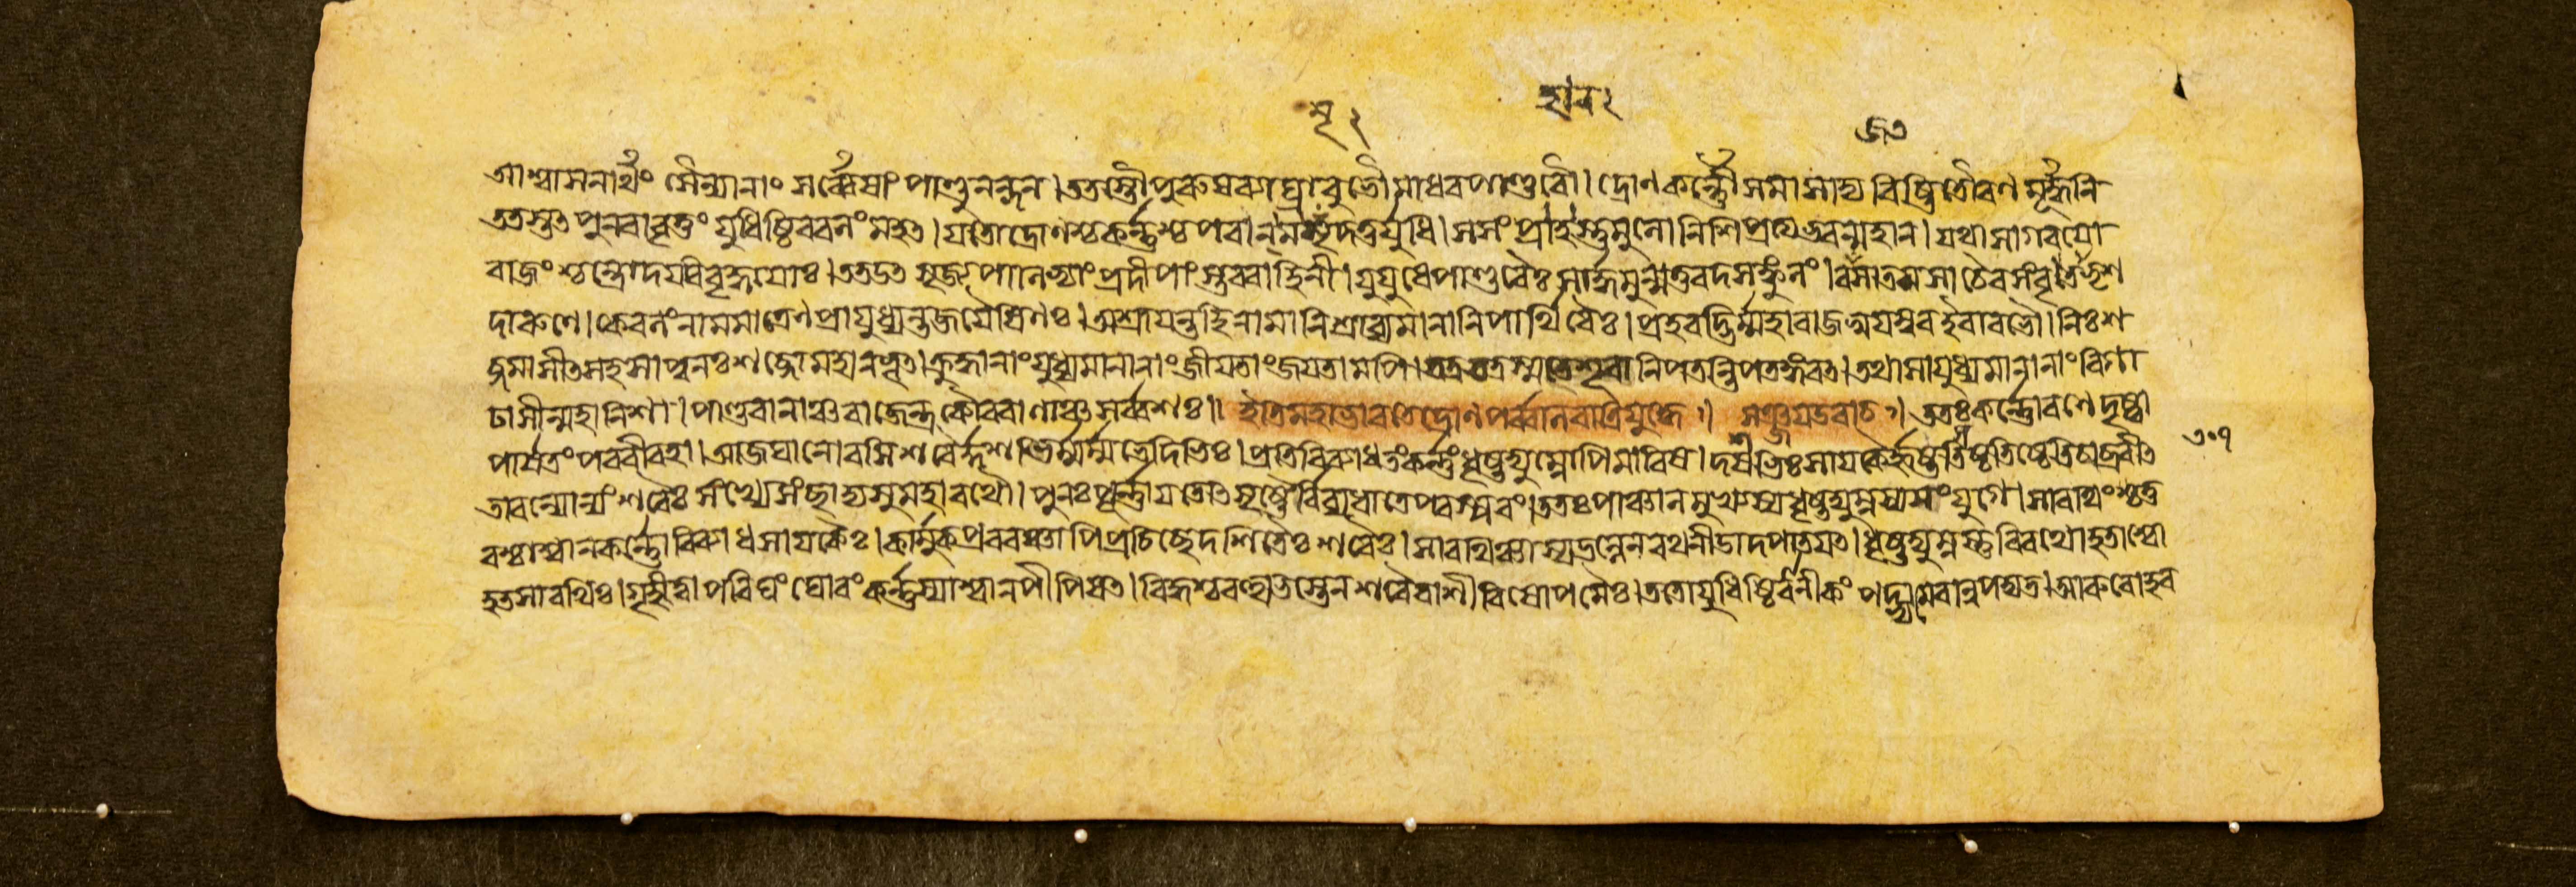 আশ্বাসনার্থং সৈন্যানাং সর্ব্বেষাং পাণ্ডুনন্দন। ততস্তৌ পুরুষব্যাঘ্রাবুভৌ মাধবপাণ্ডবৌ। দ্রোণকর্ন্নৌ সমাসাদ্য বিষ্ঠিতৌ রণমূর্দ্ধনি
ততস্তৎ পুনরাবৃত্তং যুধিষ্ঠিরবলং মহৎ। যতো দ্রোণশ্চ কর্ন্নশ্চ পরান্মমৃদতুর্যুধি। স সং প্রাহস্তুমুলো নিশি প্রত্যভবন্মহান। যথা সাগরযো
রাজং শ্চন্দ্রোদযবিবৃদ্ধযোঃ। ততউৎসৃজ্য পানিভ্যাং প্রদীপাংস্তববাহিনী। যুযুধে পাণ্ডবৈঃ সার্দ্ধমুন্মত্তবদসঙ্কুলং। রজসাতমসা চৈব সংবৃতেভৃশ
দারুণে। কেবলং নামমাত্রেণ প্রাযুধ্যন্ত জযৈষিণঃ। অশ্রূযন্ত হি নামানি শ্রাব্যমানানি পার্থিবৈঃ। প্রহরদ্ভির্ম্মহারাজ স্বযম্বরইবাবভৌ। নিঃশ
ব্দমাসীৎ সহসা পুনঃ শব্দো মহানভূৎ। ক্রুদ্ধানাং যুধ্যমানানাং জীযতাং জযতামপি। তত্রতত্রস্মতেশূরা নিপতন্তি পতঙ্গবত। তথা সাযুধ্যমানানাং বিগা
ঢাসীন্মহানিশা। পাণ্ডবানাঞ্চ রাজেন্দ্র কৌরবাণাঞ্চ সর্ব্বশঃ॥ ইতি মহাভারতে দ্রোণপর্ব্বনিরাত্রিযুদ্ধে।। সঞ্জযউবাচ।। ততঃ কর্ন্নোরণে দৃষ্ট্বা
পার্ষতং পরবীরহা। আজঘানোরসি শরৈর্দ্দশভির্ম্মর্ম্মভেদিভিঃ। প্রতিবিব্যাধ তং কর্ন্নং ধৃষ্টদ্যুম্নোপি মারিষ। দশভিঃ সাযকৈর্হৃষ্টস্তিষ্ঠতিষ্ঠেতি চাব্রবীৎ
তাবন্যোন্যং শরৈঃ সংখ্যে সংছাদ্য সুমহারথৌ। পুনঃ পূর্ন্নাযতোৎসৃষ্টৈর্বিব্যধাতে পরস্পরং। ততঃ পাঞ্চালমুখ্যস্য ধৃষ্টদ্যুম্নস্য সংযুগে। সারথিং শ্চতু
রশ্চাশ্বানকর্ন্নো বিব্যাধ সাযকৈঃ। কার্মুকপ্রবরঞ্চাপি প্রচিচ্ছেদ শিতৈঃ শরৈঃ। সারথিঞ্চাস্য ভল্লেন রথনীডাদপাতযৎ। ধৃষ্টদ্যুম্নস্তু বিরথো হতাশ্বো
হতসারথিঃ। গৃহীত্বা পরিঘং ঘোরং কর্ন্নস্যাশ্বানপীপিষৎ। বিদ্ধশ্চ বহুভিস্তেন শরৈরাশীবিষোপমৈঃ। ততো যুধিষ্ঠিরানীকং পদ্ভ্যামেবান্বপদ্যত। আরুরোহর